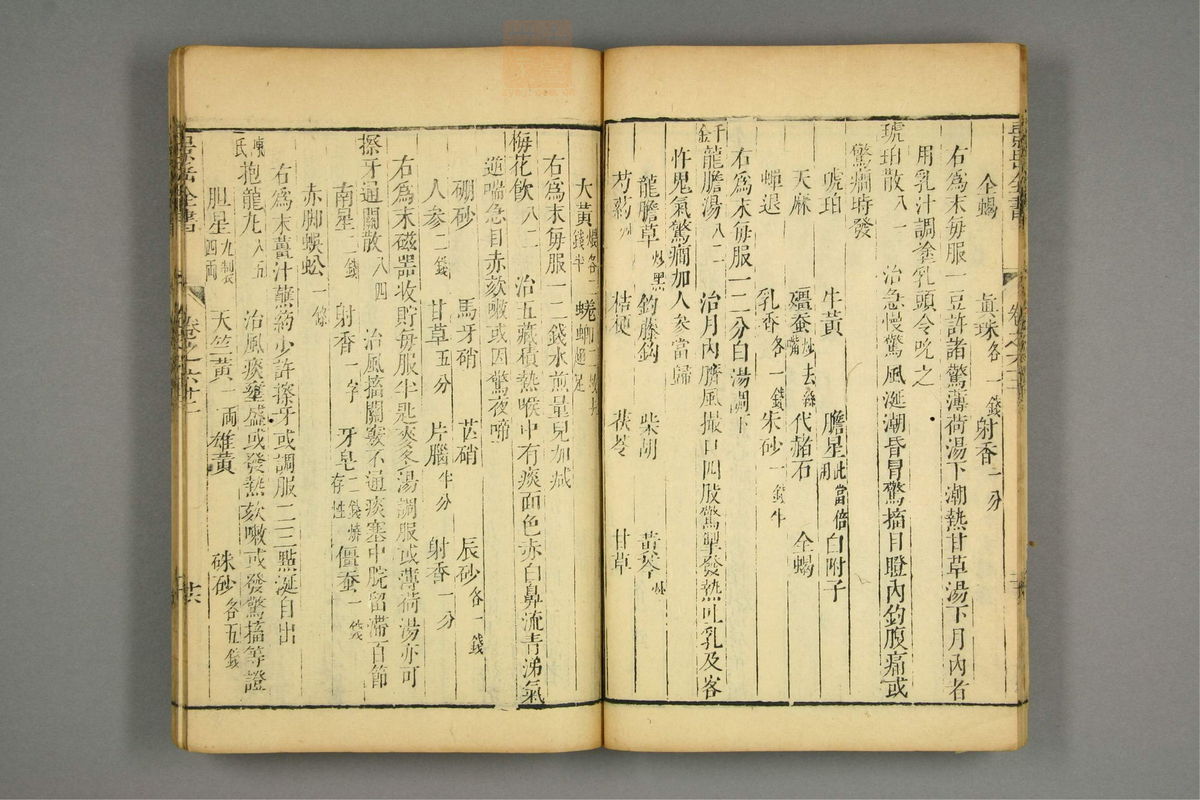 景岳全書
全蝎 眞珠各一錢 射香二分
右爲末每服一豆許諸驚薄荷湯下潮熱甘草湯下月內者
用乳汁調塗乳頭令吮之
琥珀散八一 治急慢驚風涎潮昏冒驚搐目瞪內鈎腹痛或
驚癇時發
琥珀 牛黃 膽星此當倍用 白附子
天麻 殭蚕炒去絲嘴 代赭石 全蝎
蟬退 乳香各一錢 朱砂一錢半
右爲末每服一二分白湯調下
千金龍膽湯八二 治月內臍風撮口四肢驚掣發熱吐乳及客
忤鬼氣驚癇加人參當歸
龍膽草炒黑 鈎藤鈎 柴胡 黃芩
芍藥炒 桔梗 茯苓 甘草
大黃煨各二錢半 蜣蜋二枚去翅足
右爲末每服一二錢水煎量兒加减
梅花飲八二 治五藏積熱喉中有痰面色赤白鼻流青涕氣
逆喘急目赤欬嗽或因驚夜啼
硼砂 馬牙硝 芒硝 辰砂各一錢
人參二錢 甘草五分 片腦半分 射香一分
右爲末磁器收貯每服半匙麥冬湯調服或薄荷湯亦可
擦牙通關散八四 治風搐關竅不通痰塞中脘留滯百節
南星二錢 射香一字 牙皂二錢燒存性 僵蚕一錢
赤脚蜈蚣一條
右爲末薑汁蘸藥少許擦牙或調服二三點涎自出
陳氏抱龍丸八五 治風痰壅盛或發熱欬嗽或發驚搐等證
膽星九製四両 天竺黃一両 雄黃 硃砂各五錢
景岳全書
卷之六十二
廿六